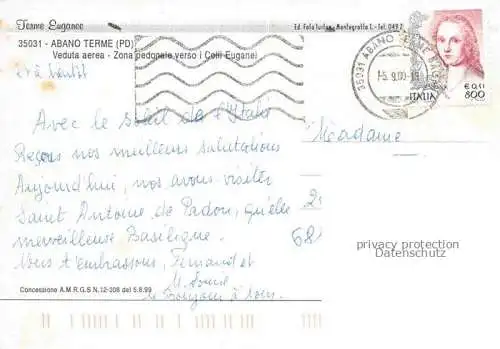 Terme Euganee
35031 - ABANO TERME (PD)
Veduta aerea - Zona pedonale verso i Colli Euganei
Ed. Foto Turismo - Montegrotto T. - Tel. 049.7
35031 ABANO TERME
-5. 9.00
€ 0,41
ITALIA 800
et à bientôt
Avec le soleil de l'Italie
Reçois nos meilleurs salutations
Aujourd'hui, nos avous visiter
Saint Antoine de Padou, quelle
merveilleuse Basilique.
Vous t'embrassons, Fernand et
le Bonjour à tous.
Madame
68
privacy protection
Datenschutz
Concessione A.M.R.G.S N.12-308 del 5.8.99